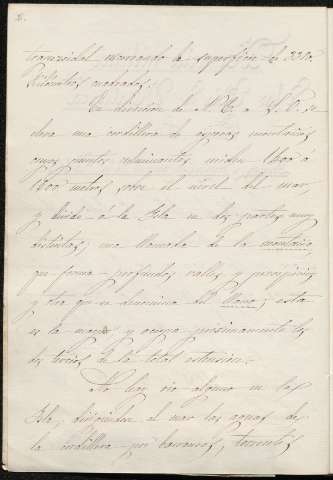 2.
trapezoidal marcando la superficie de 3390
kilómetros cuadrados.
En dirección de N.E. a S.O. se
eleva una cordillera de ásperas montañas
cuyos puntos culminantes miden 1600 á
1800 metros sobre el nivel del mar,
y divide á la Isla en dos partes muy
distintas; una llamada de la montaña,
que forma profundos valles y precipicios
y otra que se denomina del llano; esta
es la mayor y ocupa proximamente los
dos tercios de la total estension.
No hay rio alguno en las
Isla, dirigiendose al mar las aguas de
la cordillera por barrancos, torrentes